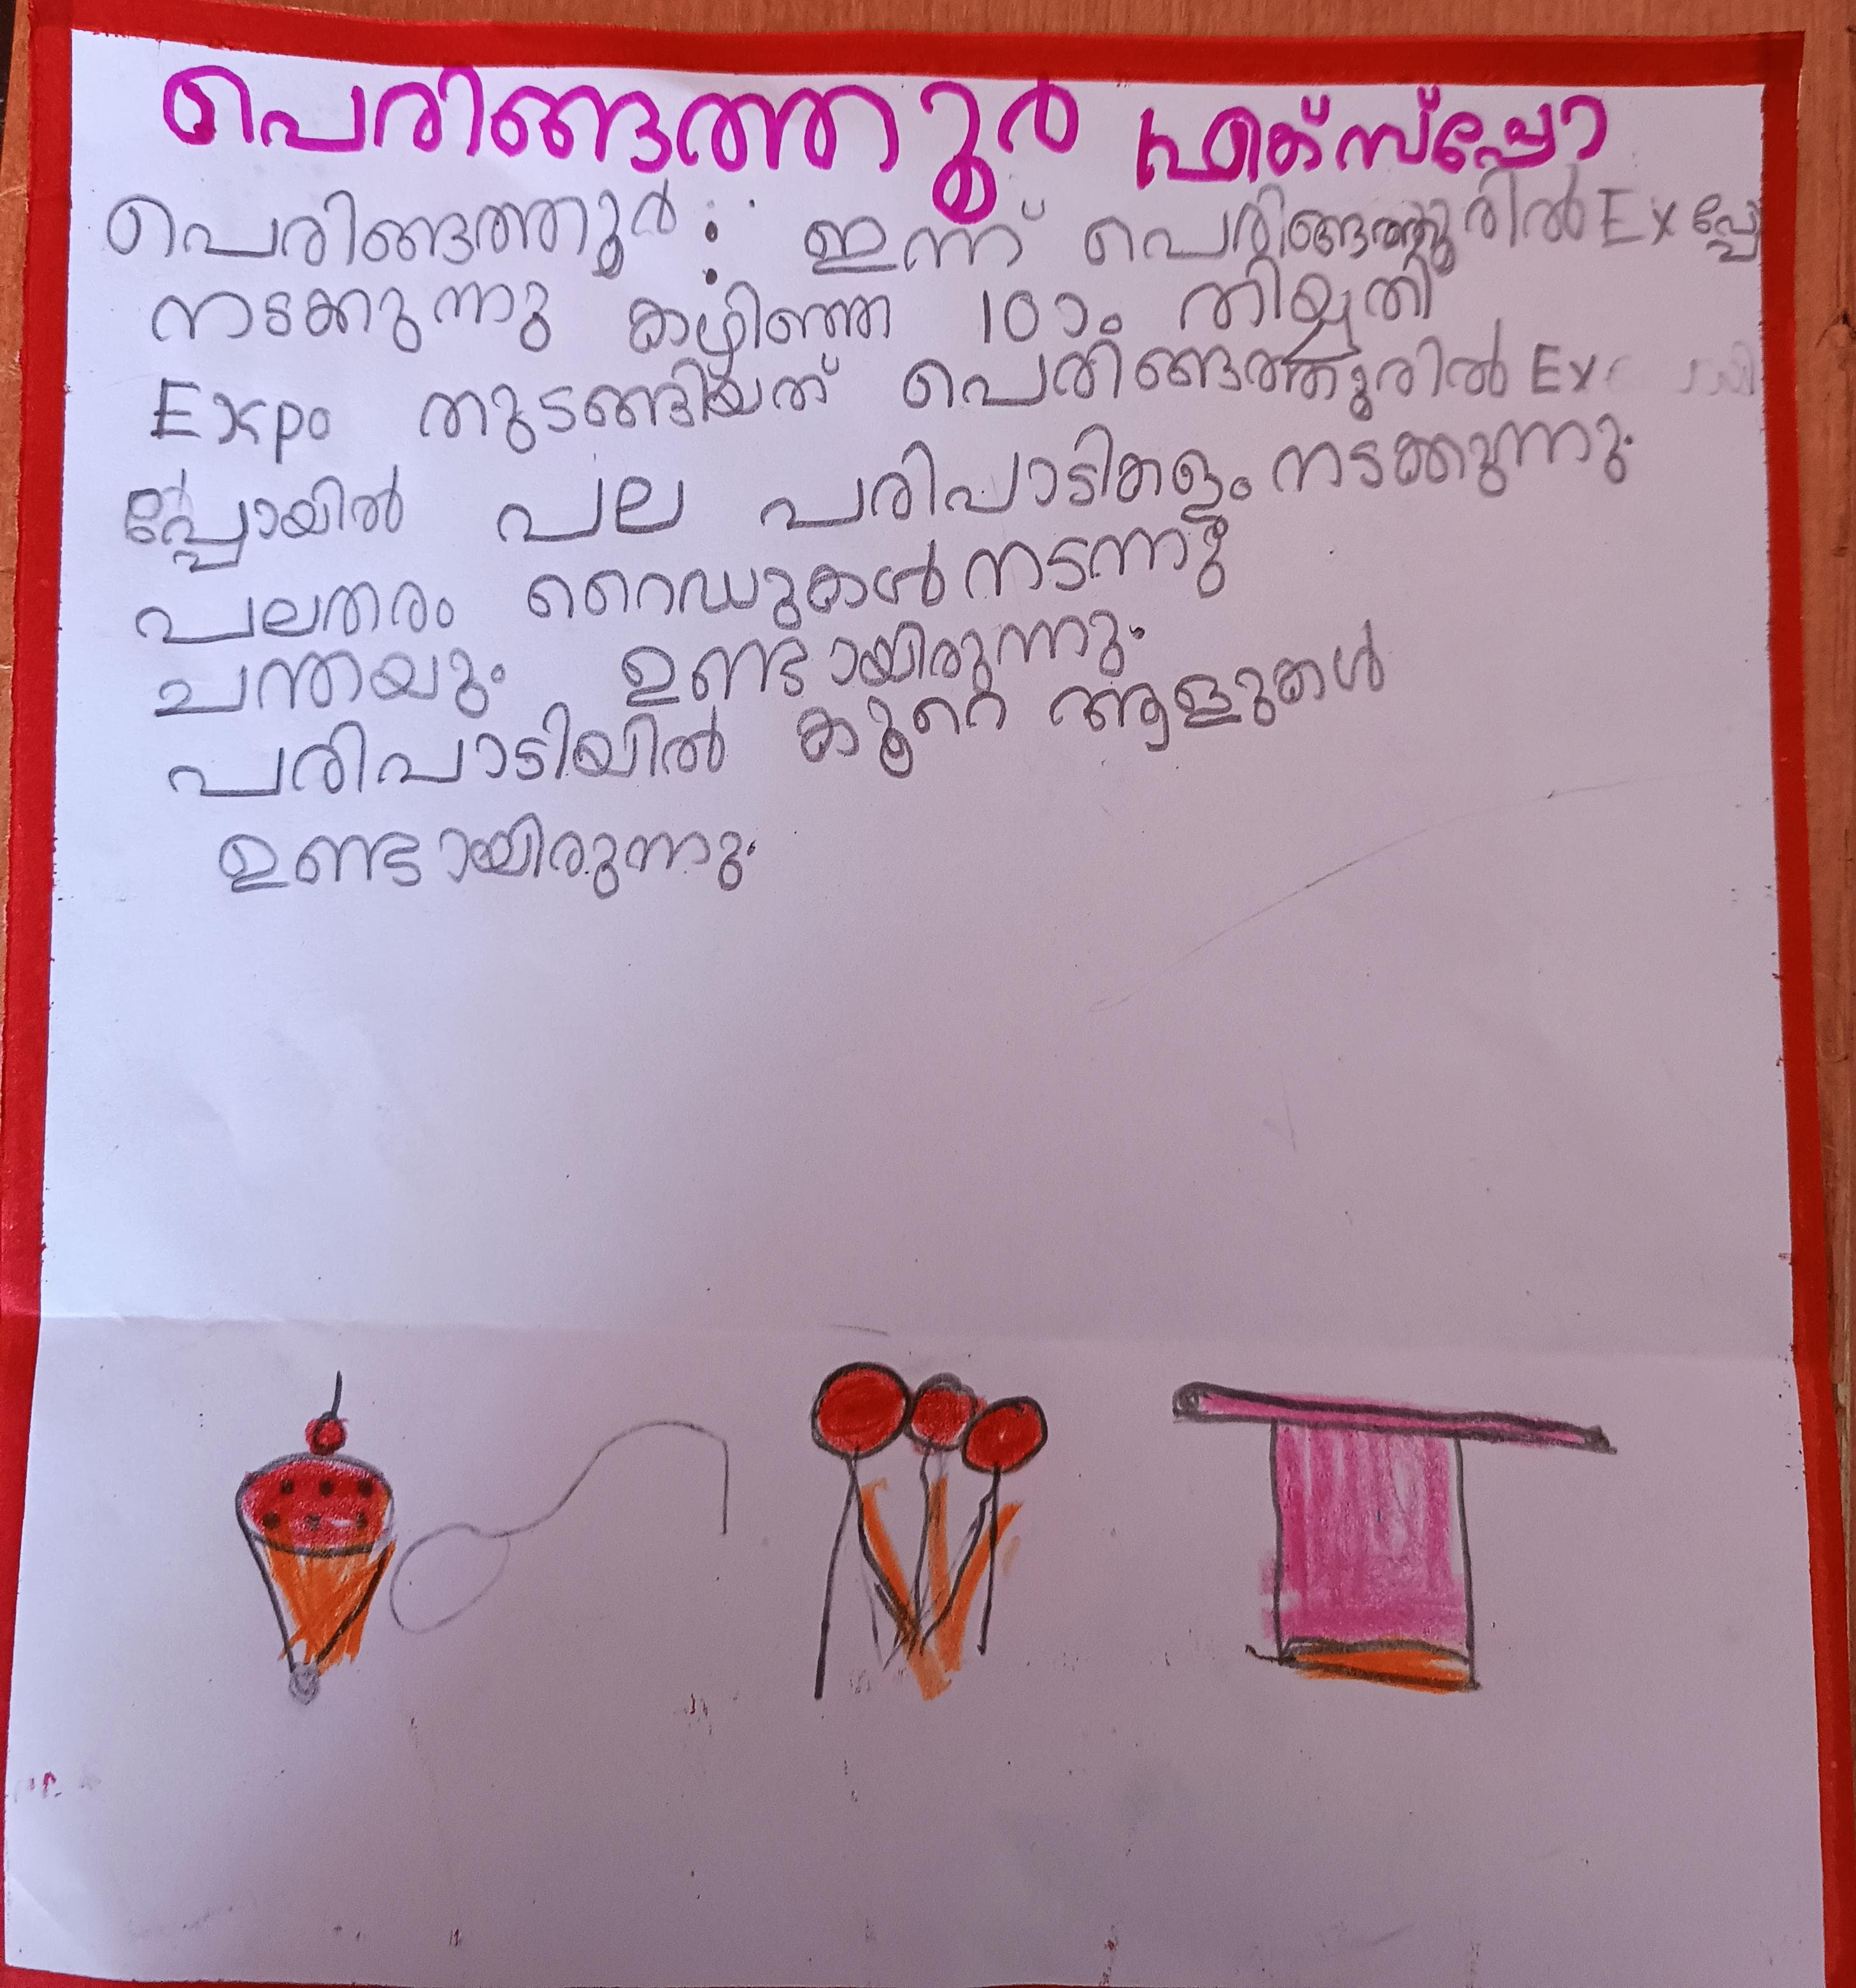 പെരിങ്ങത്തൂർ എക്സ്പ്പോ
പെരിങ്ങത്തൂർ : ഇന്ന് പെരിങ്ങത്തൂരിൽ Ex പ്പോ
നടക്കുന്നു കഴിഞ്ഞ 10ാം തിയ്യതി
Expo തുടങ്ങിയത് പെരിങ്ങത്തൂരിൽ Ex
പ്പോയിൽ പല പരിപാടികളും നടക്കുന്നു.
പലതരം റൈഡുകൾ നടന്നു
ചന്തയും ഉണ്ടായിരുന്നു.
പരിപാടിയിൽ കൂറെ ആളുകൾ
ഉണ്ടായിരുന്നു.